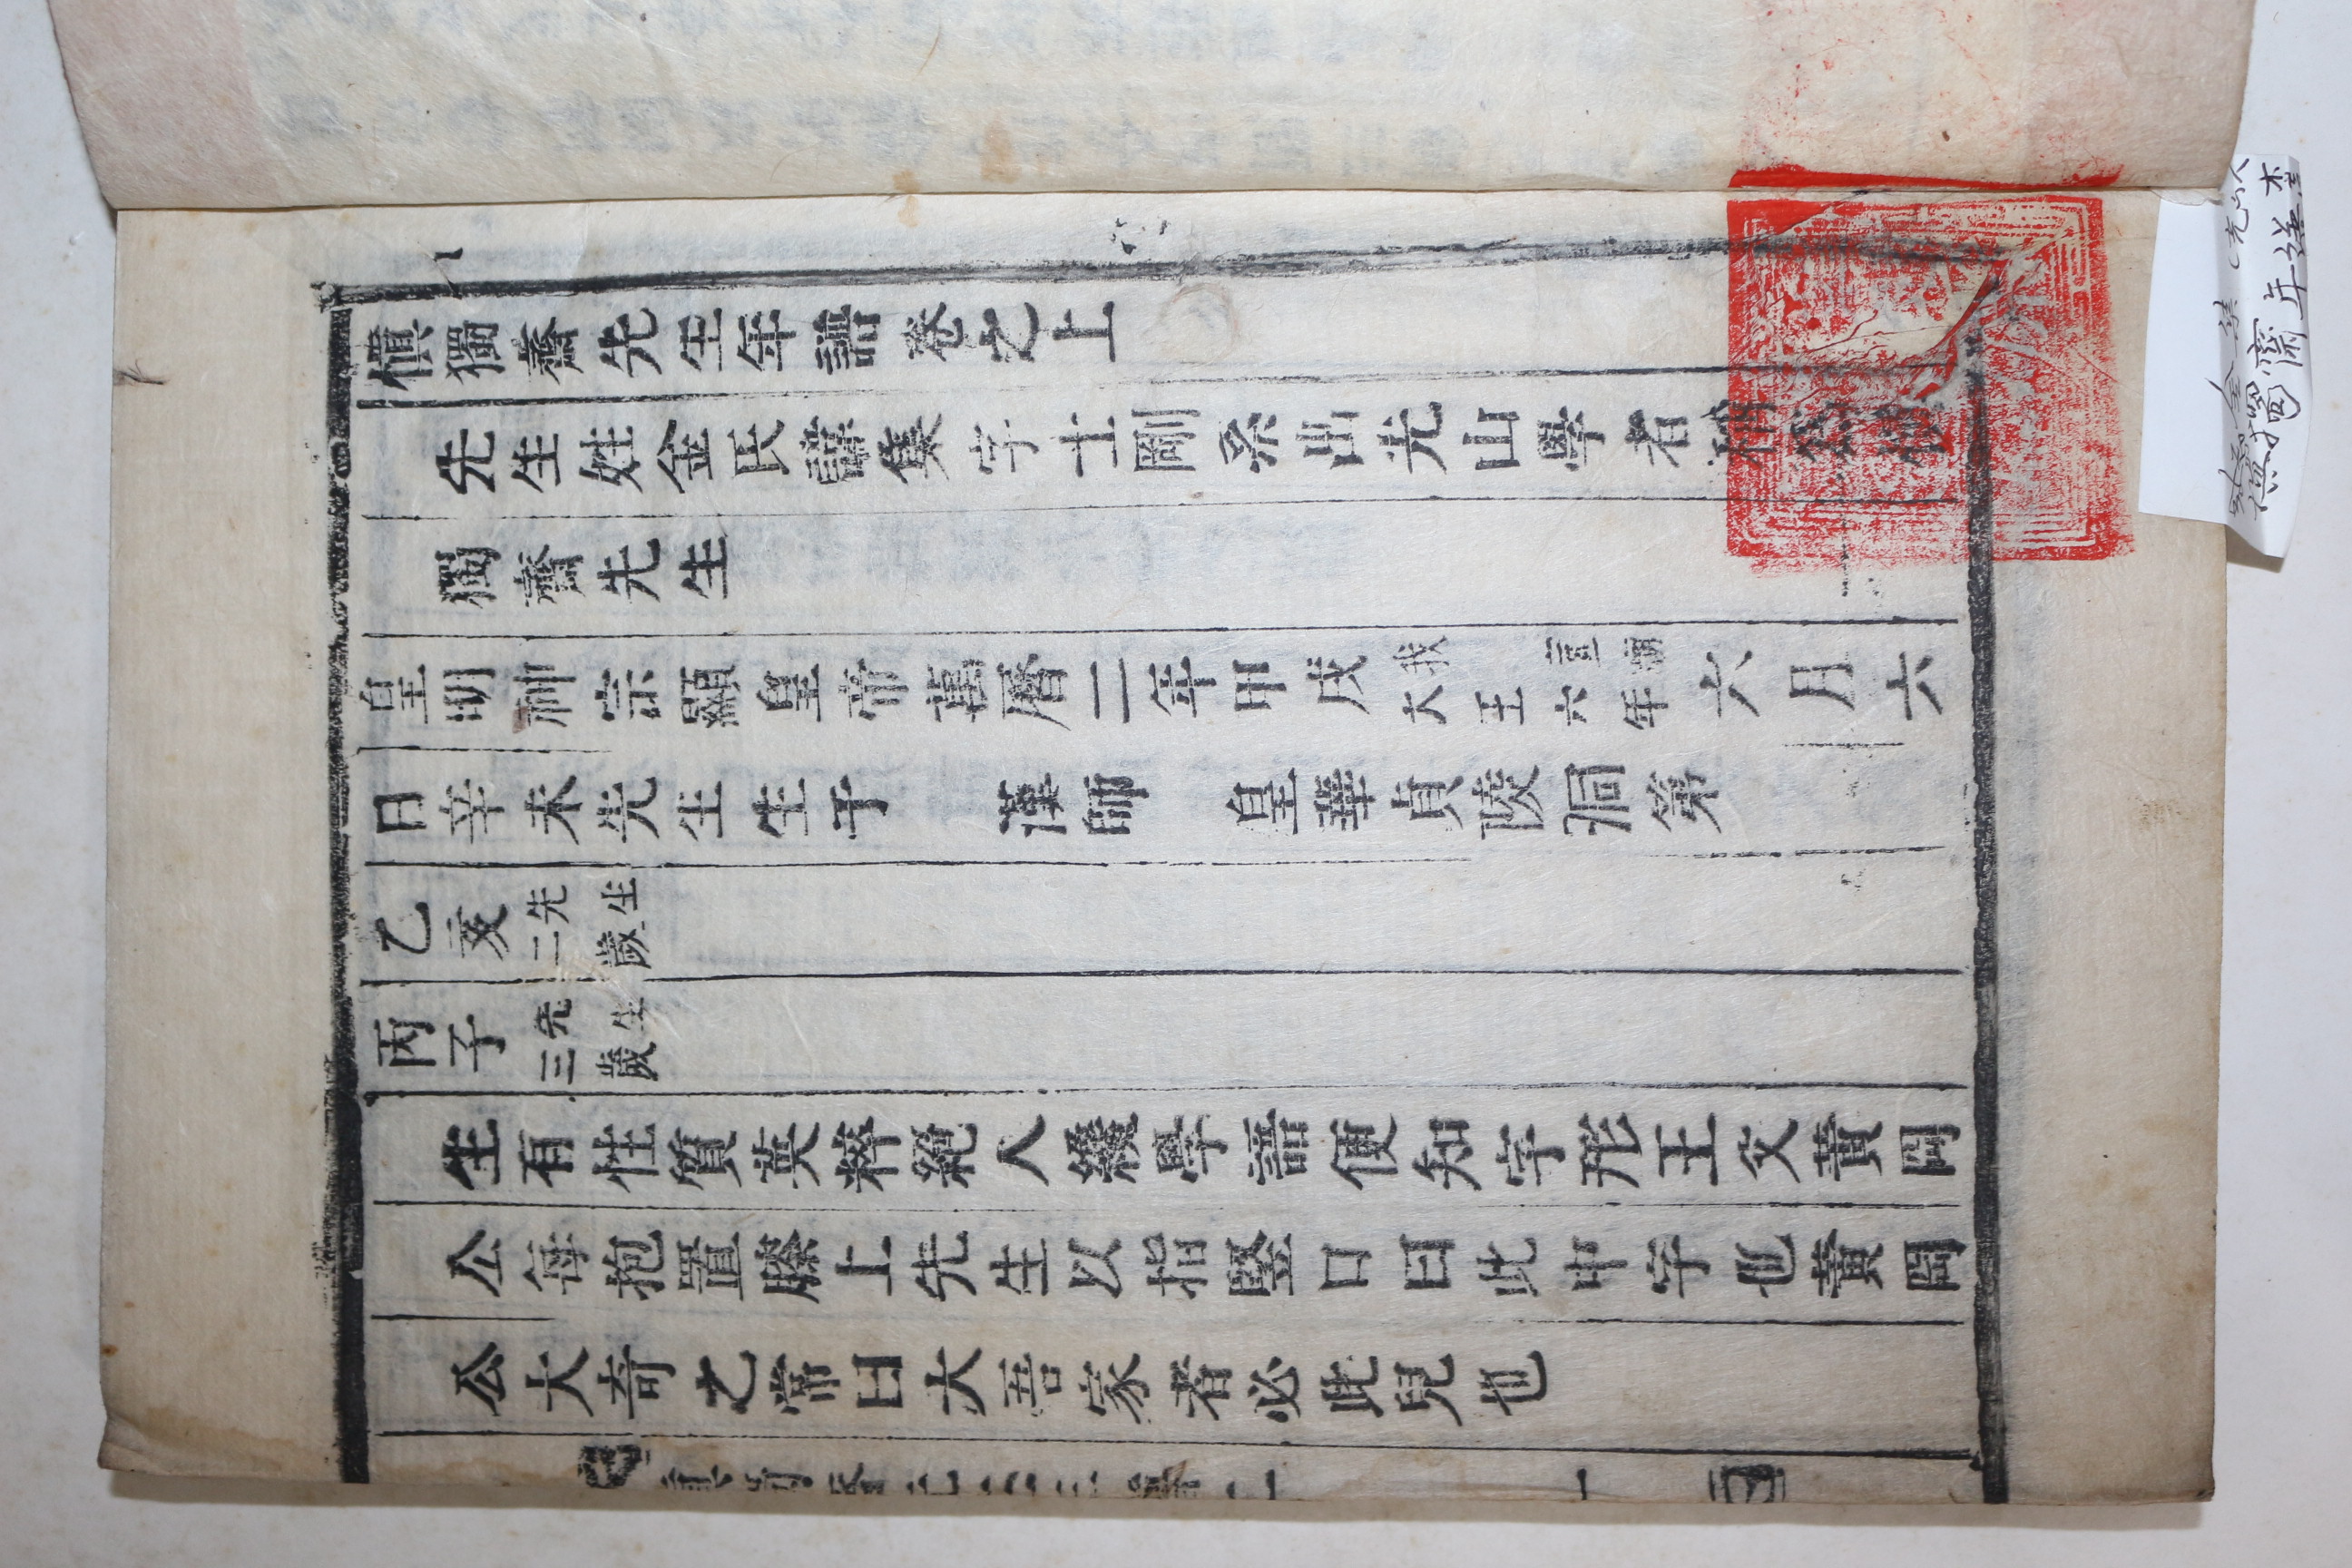 愼獨齋先生年譜卷之上
先生姓金氏諱集字士剛系出光山學者稱爲愼
獨齋先生
皇明神宗顯皇帝萬曆二年甲戌我 宣廟大王六年六月六
日辛未先生生于 漢師 皇華貞陵洞第
乙亥先生二歲
丙子先生三歲
生有性質英粹絕人纔學語便知字形王父黃岡
公每抱置膝上先生以指竪口曰此中字也黃岡
公大奇之常曰大吾家者必此兒也
金集
愼獨齋年譜